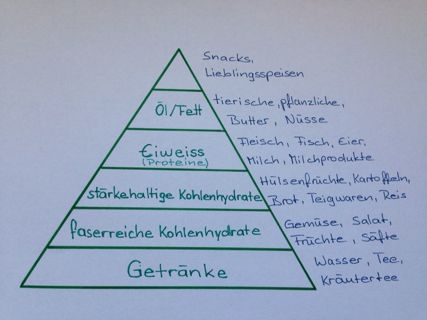 Snacks,
Lieblingsspeisen
Öl/Fett
tierische, pflanzliche,
Butter, Nüsse
Eiweiss
(Proteine)
Fleisch, Fisch, Eier,
Milch, Milchprodukte
stärkehaltige Kohlenhydrate
Hülsenfrüchte, Kartoffeln,
Brot, Teigwaren, Reis
faserreiche Kohlenhydrate
Gemüse, Salat,
Früchte, Säfte
Getränke
Wasser, Tee,
Kräutertee